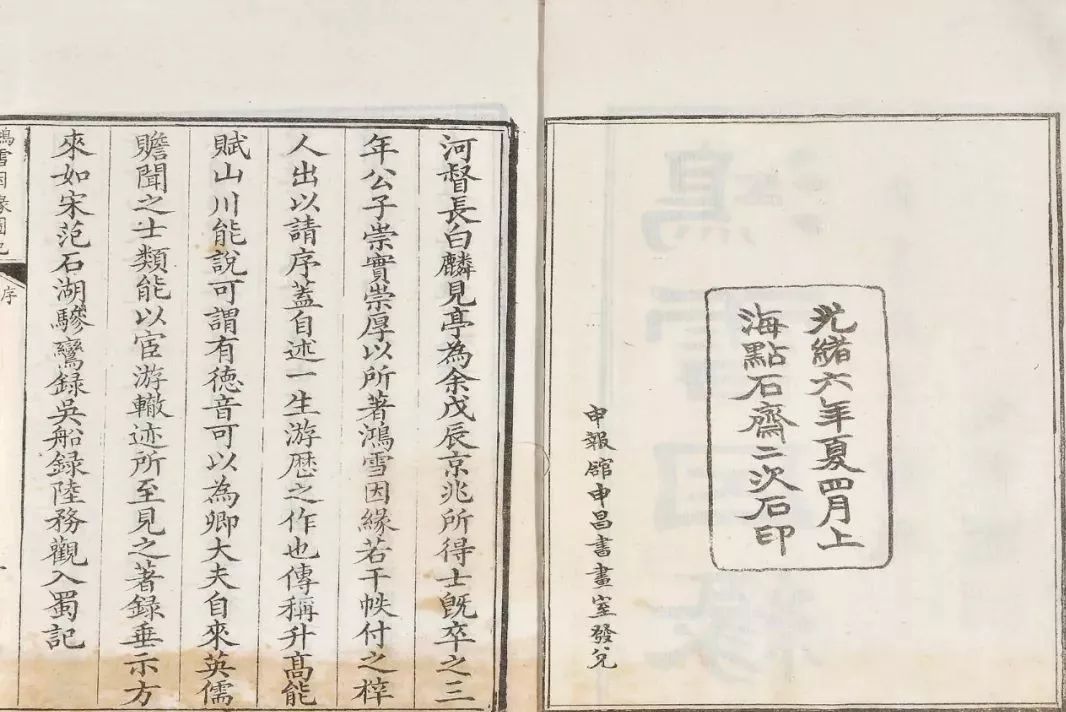 光緒六年夏四月上
海點石齋二次石印
申報館申昌書畫室發兌
河督長白麟見亭為余戊辰京兆所得士旣卒之三
年公子崇實崇厚以所著鴻雪因緣若干帙付之梓
人出以請序蓋自述一生游歷之作也傳稱升高能
賦山川能說可謂有德音可以為卿大夫自來英儒
贍聞之士類能以宦游轍迹所至見之著録垂示方
來如宋范石湖驂鸞録吳船録陸務觀入蜀記
鴻雪因緣圖記
序